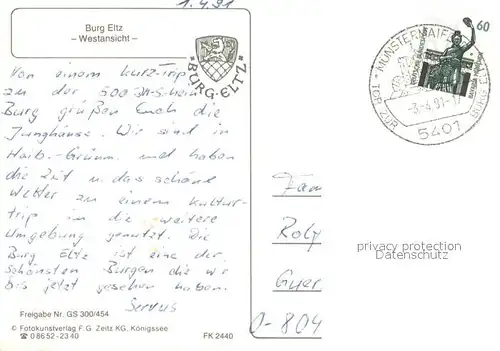 1.4.91
Burg Eltz
- Westansicht -
BURG-ELTZ
60
MÜNSTERMAIFELD
-3.-4.91-17
TOR ZUR BURG ELTZ
5401
Von einem Kurz-Trip
zu der 500 DM-Schein
Burg grüßen Euch die
Junghänse. Wir sind in
und haben
die Zeit u. das schöne
Wetter zu einem Kultur-
trip in die weitere
Umgebung genutzt. Die
Burg Eltz ist eine der
schönsten Burgen die wir
bis jetzt gesehen haben.
Servus
Fam
Rolf
Guer
O-804
privacy protection
Datenschutz
Freigabe Nr. GS 300/454
© Fotokunstverlag F.G. Zeitz KG, Königssee
☎ 0 86 52-23 40
FK 2440